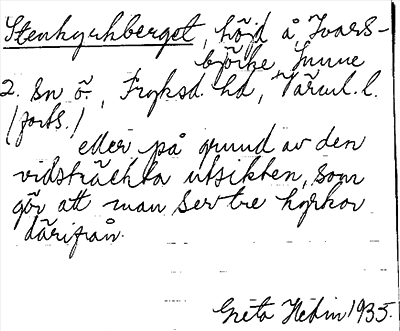 Stenkyrkberget, höjd å Ivars-
björke, Sunne
2. sn ö., Fryksd. hd, Värml. l.
(forts.)
eller på grund av den
vidsträckta utsikten, som
gör att man ser tre kyrkor
därifrån.
Greta Hedin 1935.